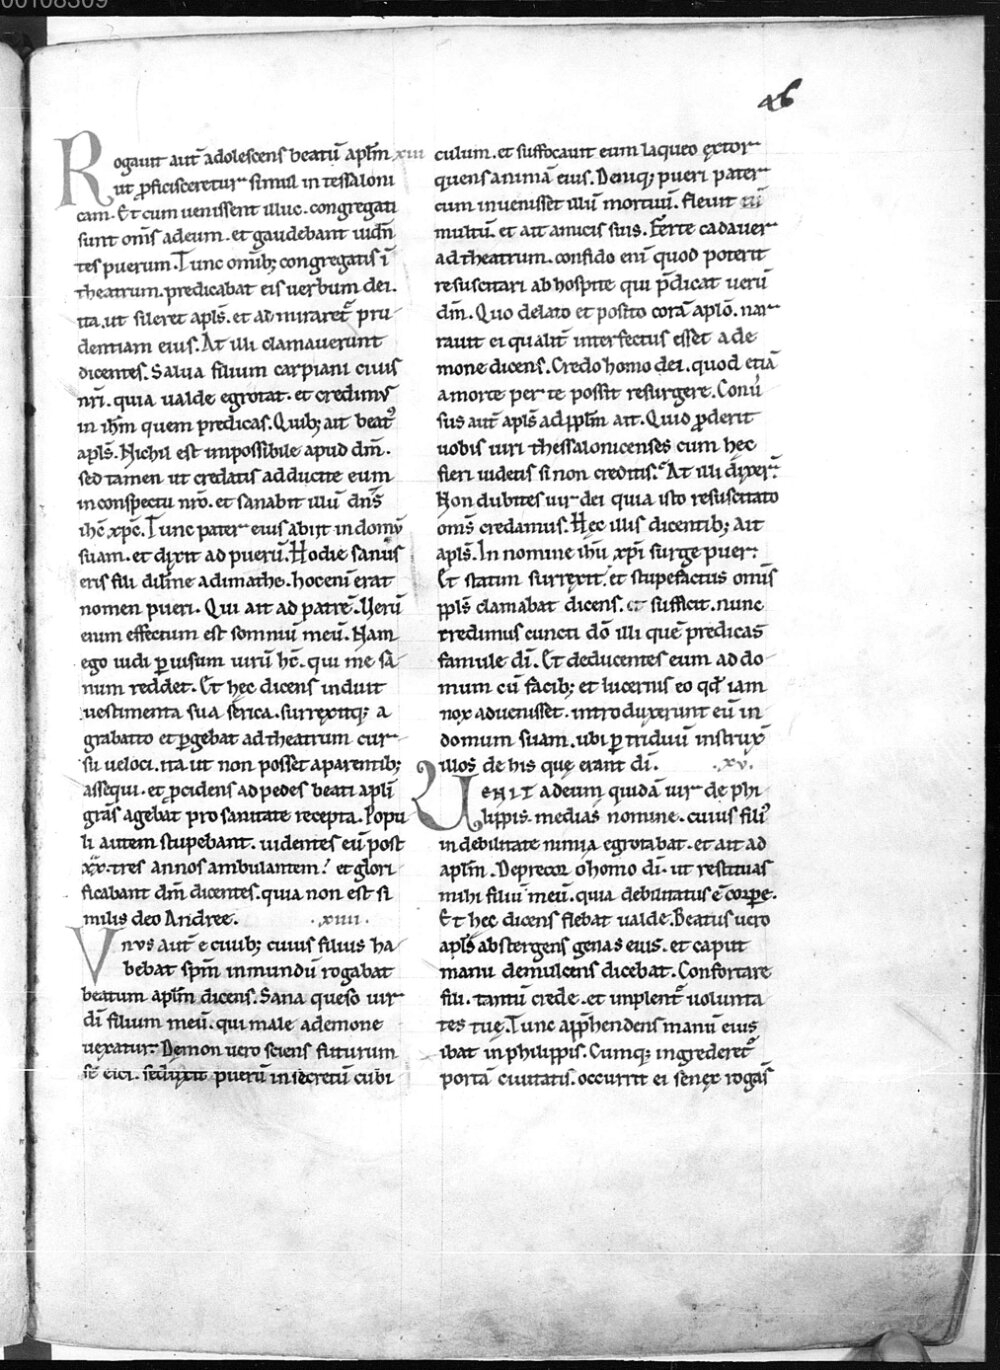 46
Rogauit aut̄ adolescens beatū aplm̄ xiii
ut ꝓficisceretur simul in tessaloni
cam. Et cum uenissent illuc. congregati
sunt om̄s adeum. et gaudebant uidn̄
tes puerum. Tunc omib; congregatis ī
theatrum. predicabat eis uerbum dei.
ita. ut sileret apls̄. et ad miraret᷑ pru
dentiam eius. At illi clamauerunt
dicentes. Salua filium carpiani ciuis
nr̄i. quia ualde egrotat. et credimꝰ
in ih̄m quem predicas. Quib; ait beatꝰ
apls̄. Nichil est impossibile apud dm̄.
sed tamen ut credatis adducite eum
in conspectu nr̄o. et sanabit illū dn̄s
ih̄c xp̄c. Tunc pater eius abijt in domū
suam. et dixit ad puerū. Hodie sanus
eris fili dil̄ine adimathe. hoc enī erat
nomen pueri. Qui ait ad patrē. Uerū
enim effectum est somniū meū. Nam
ego uidi ꝑ uisum uirū hc̄. qui me sā
num reddet. Et hec dicens induit
uestimenta sua serica. surrexitq; a
grabatto et ꝑgebat ad theatrum cur
su ueloci. ita ut non posset aparentib;
assequi. et ꝓcidens ad pedes beati apl̄i
grās agebat pro sanitate recepta. Popu
li autem stupebant. uidentes eū post
xx. tres annos ambulantem! et glori
ficabant dm̄ dicentes. quia non est si
milis deo Andree. .xiiii.
Vnvs aut̄ e ciuib; cuius filius ha
bebat spm̄ inmundū rogabat
beatum aplm̄ dicens. Sana queso uir
dī filium meū. qui male ademone
uexatur. Demon uero sciens futurum
sē eici. seduxit puerū in secretū cubi
culum. et suffocauit eum laqueo ęxtor
quens animā eius. Deniq; pueri pater
cum inuenisset illū mortuū. fleuit
multū. et ait amicis suis. Ferte cadauer
ad theatrum. confido enī quod poterit
resuscitari ab hospite qui p̄dicat uerū
dm̄. Quo delato et posito corā aplō. nar
rauit ei qualit̄ interfectus esset a de
mone dicens. Credo homo dei. quod etiā
a morte per te possit resurgere. Conū
sus aut̄ apls̄ ad pplm̄ ait. Quid ꝓderit
uobis uiri thessalonicenses cum hec
fieri uidetis si non creditis. At illi dixer̄.
Non dubites uir dei quia isto resuscitato
oms̄ credamus. Hec illis dicentib; ait
apls̄. In nomine ih̄u xp̄i surge puer.
Et statim surrexit. et stupefactus omīs
ppls̄ clamabat dicens. sufficit. nunc
credimus cuncti dō illi quē predicas
famule dī. Et deducentes eum ad do
mum cū facib; et lucernis eo qd̄ iam
nox aduenisset. introduxerunt eū in
domum suam. ubi ꝑ triduū instrux̄
illos de his quę erant dī. .xv.
Uenit adeum quidā uir de phi
lippis. medias nomine. cuius filiꝰ
in debilitate nimia egrotabat. et ait ad
aplm̄. Deprecor o homo dī. ut restituas
mihi filiū meū. quia debilitatus ē corpe.
Et hec dicens flebat ualde. Beatus uero
apls̄ abstergens genas eius. et caput
manu demulcens dicebat. Confortare
fili. tantū crede. et implent᷑ uolunta
tes tuę. Tunc app̄hendens manū eius
ibat in philippis. Cumq; ingrederet᷑
portā ciuitatis. occurrit ei senex rogās